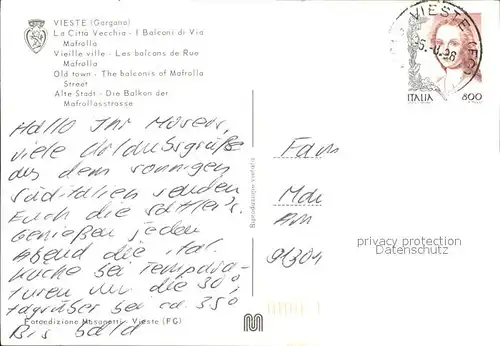 VIESTE (Gargano)
La Città Vecchia - I Balconi di Via
Mafrolla
Vieille ville - Les balcons de Rue
Mafrolla
Old town - The balconis of Mafrolla
Street
Alte Stadt - Die Balkon der
Mafrollasstrasse
VIESTE (FG)
ITALIA 800
Hallo Ihr Mosers,
viele Urlaubsgrüße
aus dem sonnigen
Süditalien senden
Euch die Sattler's.
Genießen jeden
Abend die ital.
Küche bei Tempera-
turen um die 30°,
tagsüber bei ca. 35°
Bis bald
Riproduzione vietata
Fam
91304
privacy protection
Datenschutz
Fotoedizione Masanotti - Vieste (FG)